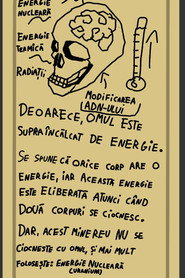 ENERGIE
NUCLEARĂ
ENERGIE
TERMICĂ
RADIAȚII
MODIFICAREA
ADN-ULUI
DEOARECE, OMUL ESTE
SUPRAÎNCĂLCAT DE ENERGIE.
SE SPUNE CĂ ORICE CORP ARE O
ENERGIE, IAR ACEASTĂ ENERGIE
ESTE ELIBERATĂ ATUNCI CÂND
DOUĂ CORPURI SE CIOCNESC.
DAR, ACEST MINEREU NU SE
CIOCNEȘTE CU OMUL, ȘI MAI MULT
FOLOSEȘTE: ENERGIE NUCLEARĂ
(URANIUM)